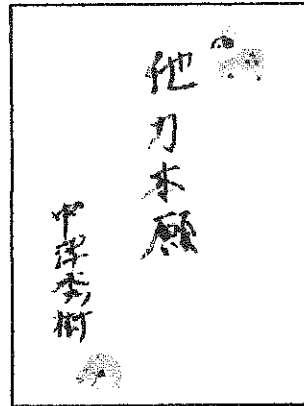 他力本願
中澤秀樹